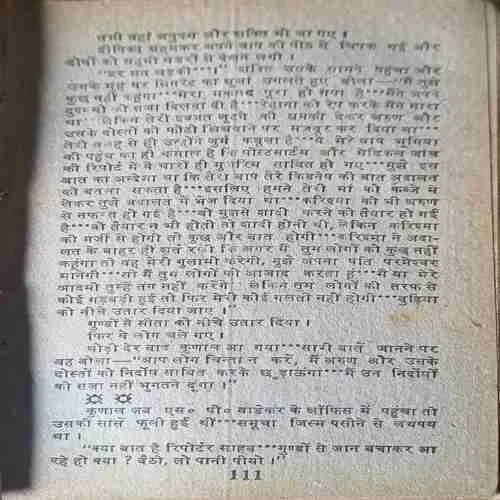 तभी वहां अनुपम और शक्ति भी आ गए ।
दीपिका सहमकर अपने बाप की पीठ से चिपक गई और
दोनों को सहमी नजरों से देखने लगी ।
"डर मत लड़की····।" शक्ति उसके सामने पहुंचा और
उसके मुंह पर सिगरेट का धुआं उगलते हुए बोला—"मैं तुझे
कुछ नहीं कहूंगा····मेरा मकसद पूरा हो गया है····मैंने अपने
दुश्मनों को सजा दिलवा दी है····रेहाना को रेप करके मैंने मारा
था····लेकिन तेरी इज्जत लूटने की धमकी देकर अरुण और
उसके दोस्तों को फोटो खिंचवाने पर मजबूर कर दिया था····
तेरी वजह से ही उन्होंने जुर्म कबूला है····ये मेरे बाप भूमिया
की पहुंच का ही कमाल है कि पोस्टमार्टम और मेडिकल जांच
की रिपोर्ट में वे चारों ही मुजरिम साबित हो गए····मुझे इस
बात का अन्देशा था कि तेरा बाप तेरे किडनैप की बात अदालत
को बतना सकता है····इसलिए हमने तेरी मां को कब्जे में
लेकर तुझे अदालत में भेज दिया था····करिश्मा को भी अरुण
से नफरत हो गई है····वो मुझसे शादी करने को तैयार हो गई
है····वो तैयार न भी होती तो शादी होनी थी, लेकिन करिश्मा
की मर्जी से होगी तो कुछ और बात होगी····करिश्मा ने अदा-
लत के बाहर ही शर्त रखी कि अगर मैं तुम लोगों को कुछ नहीं
कहूंगा तो वह मेरी गुलामी करेगी, मुझे अपना पति परमेश्वर
मानेगी····सो मैं तुम लोगों को आजाद करता हूं····मैं या मेरे
आदमी तुम्हें तंग नहीं करेंगे····लेकिन तुम लोगों की तरफ से
कोई गड़बड़ी हुई तो फिर मेरी कोई गलती नहीं होगी····बुढ़िया
को नीचे उतार दिया जाए ।"
गुण्डों ने सीता को नीचे उतार दिया ।
फिर वे लोग चले गए ।
थोड़ी देर बाद कुणाल आ गया····सारी बातें जानने पर
वह बोला—"आप लोग चिन्ता न करें, मैं अरुण और उसके
दोस्तों को निर्दोष साबित करके छुड़ाऊंगा····मैं उन निर्दोषों
को सजा नहीं भुगतने दूंगा ।"
कुणाल जब एस० पी० वाडेकर के ऑफिस में पहुंचा तो
उसकी सांस फूली हुई थी····समूचा जिस्म पसीने से लथपथ
था ।
"क्या बात है रिपोर्टर साहब····गुण्डों से जान बचाकर आ
रहे हो क्या ? बैठो, लो पानी पीयो ।"
111